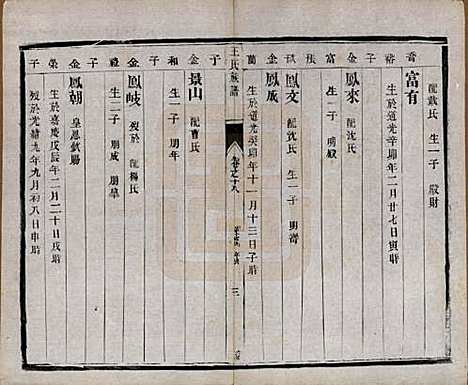 喬裕子
富有
配戴氏 生一子 啟財
生於道光辛卯年二月廿七日寅時
子
鳳來
配沈氏
生一子 明毅
富根子
鳳文
配沈氏 生一子 明齊
金
鳳成
生於道光癸卯年十一月十三日子時
蘭
王氏族譜
卷之十八
三
于
金
景山
配曹氏
生一子 朋年
和子
金
鳳岐
歿於 配楊氏
生二子 朋成 朋學
發子
金
鳳朝
皇恩欽賜
生於嘉慶戊辰年二月二十日戌時
榮子
歿於光緒九年九月初八日申時